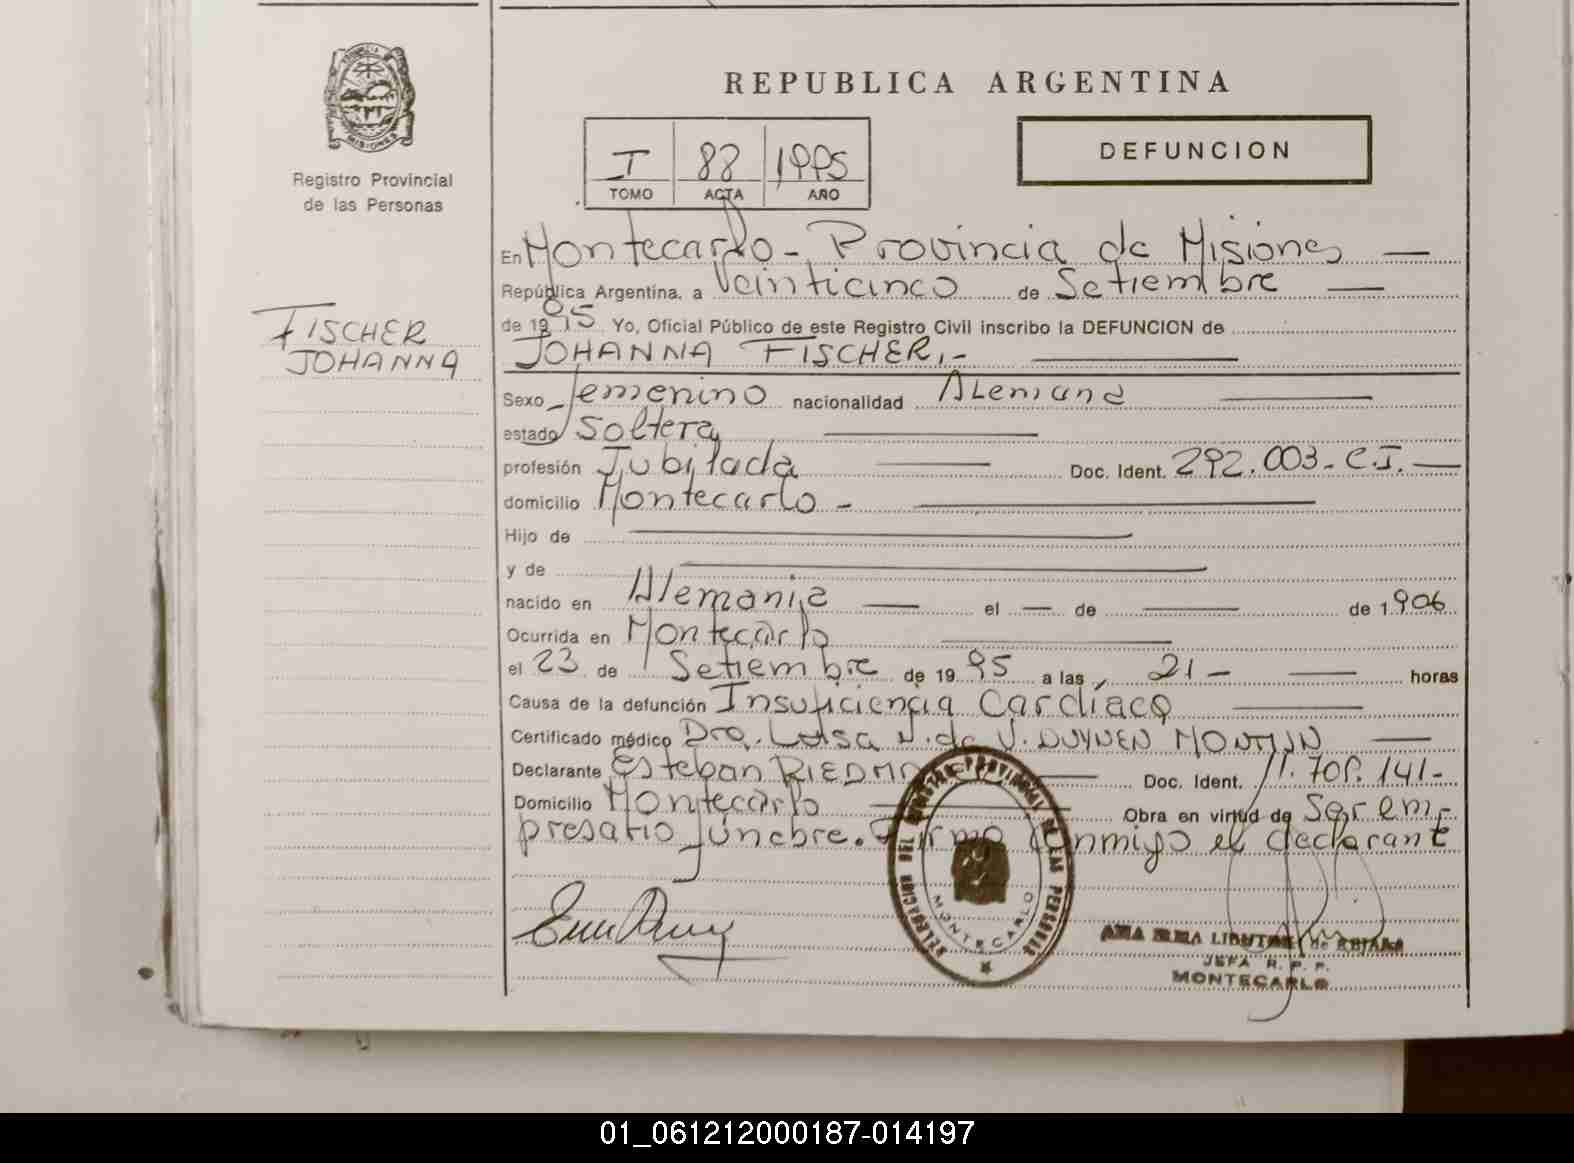 REPUBLICA ARGENTINA
PROVINCIA DE MISIONES
Registro Provincial
de las Personas
I 88 1995
TOMO ACTA AÑO
DEFUNCION
En Montecarlo - Provincia de Misiones
República Argentina, a Veinticinco de Setiembre
de 1995 Yo, Oficial Público de este Registro Civil inscribo la DEFUNCION de
FISCHER
JOHANNA
JOHANNA FISCHER.-
Sexo femenino nacionalidad Alemana
estado Soltera
profesión Jubilada Doc. Ident. 292.003-C.I.
domicilio Montecarlo -
Hijo de
y de
nacido en Alemania el — de — de 1.906
Ocurrida en Montecarlo
el 23 de Setiembre de 1995 a las 21 - horas
Causa de la defunción Insuficiencia Cardíaca
Certificado médico Dra. Luisa N. de V. DUYNEN MONTIJN
Declarante Esteban Doc. Ident. 11.709.141-
Domicilio Montecarlo Obra en virtud de Ser em-
presario fúnebre. Firma conmigo el declarante
DELEGACION DEL REGISTRO PROVINCIAL DE LAS PERSONAS
MONTECARLO
ANA de
JEFA R. P. P.
MONTECARLO
01_061212000187-014197